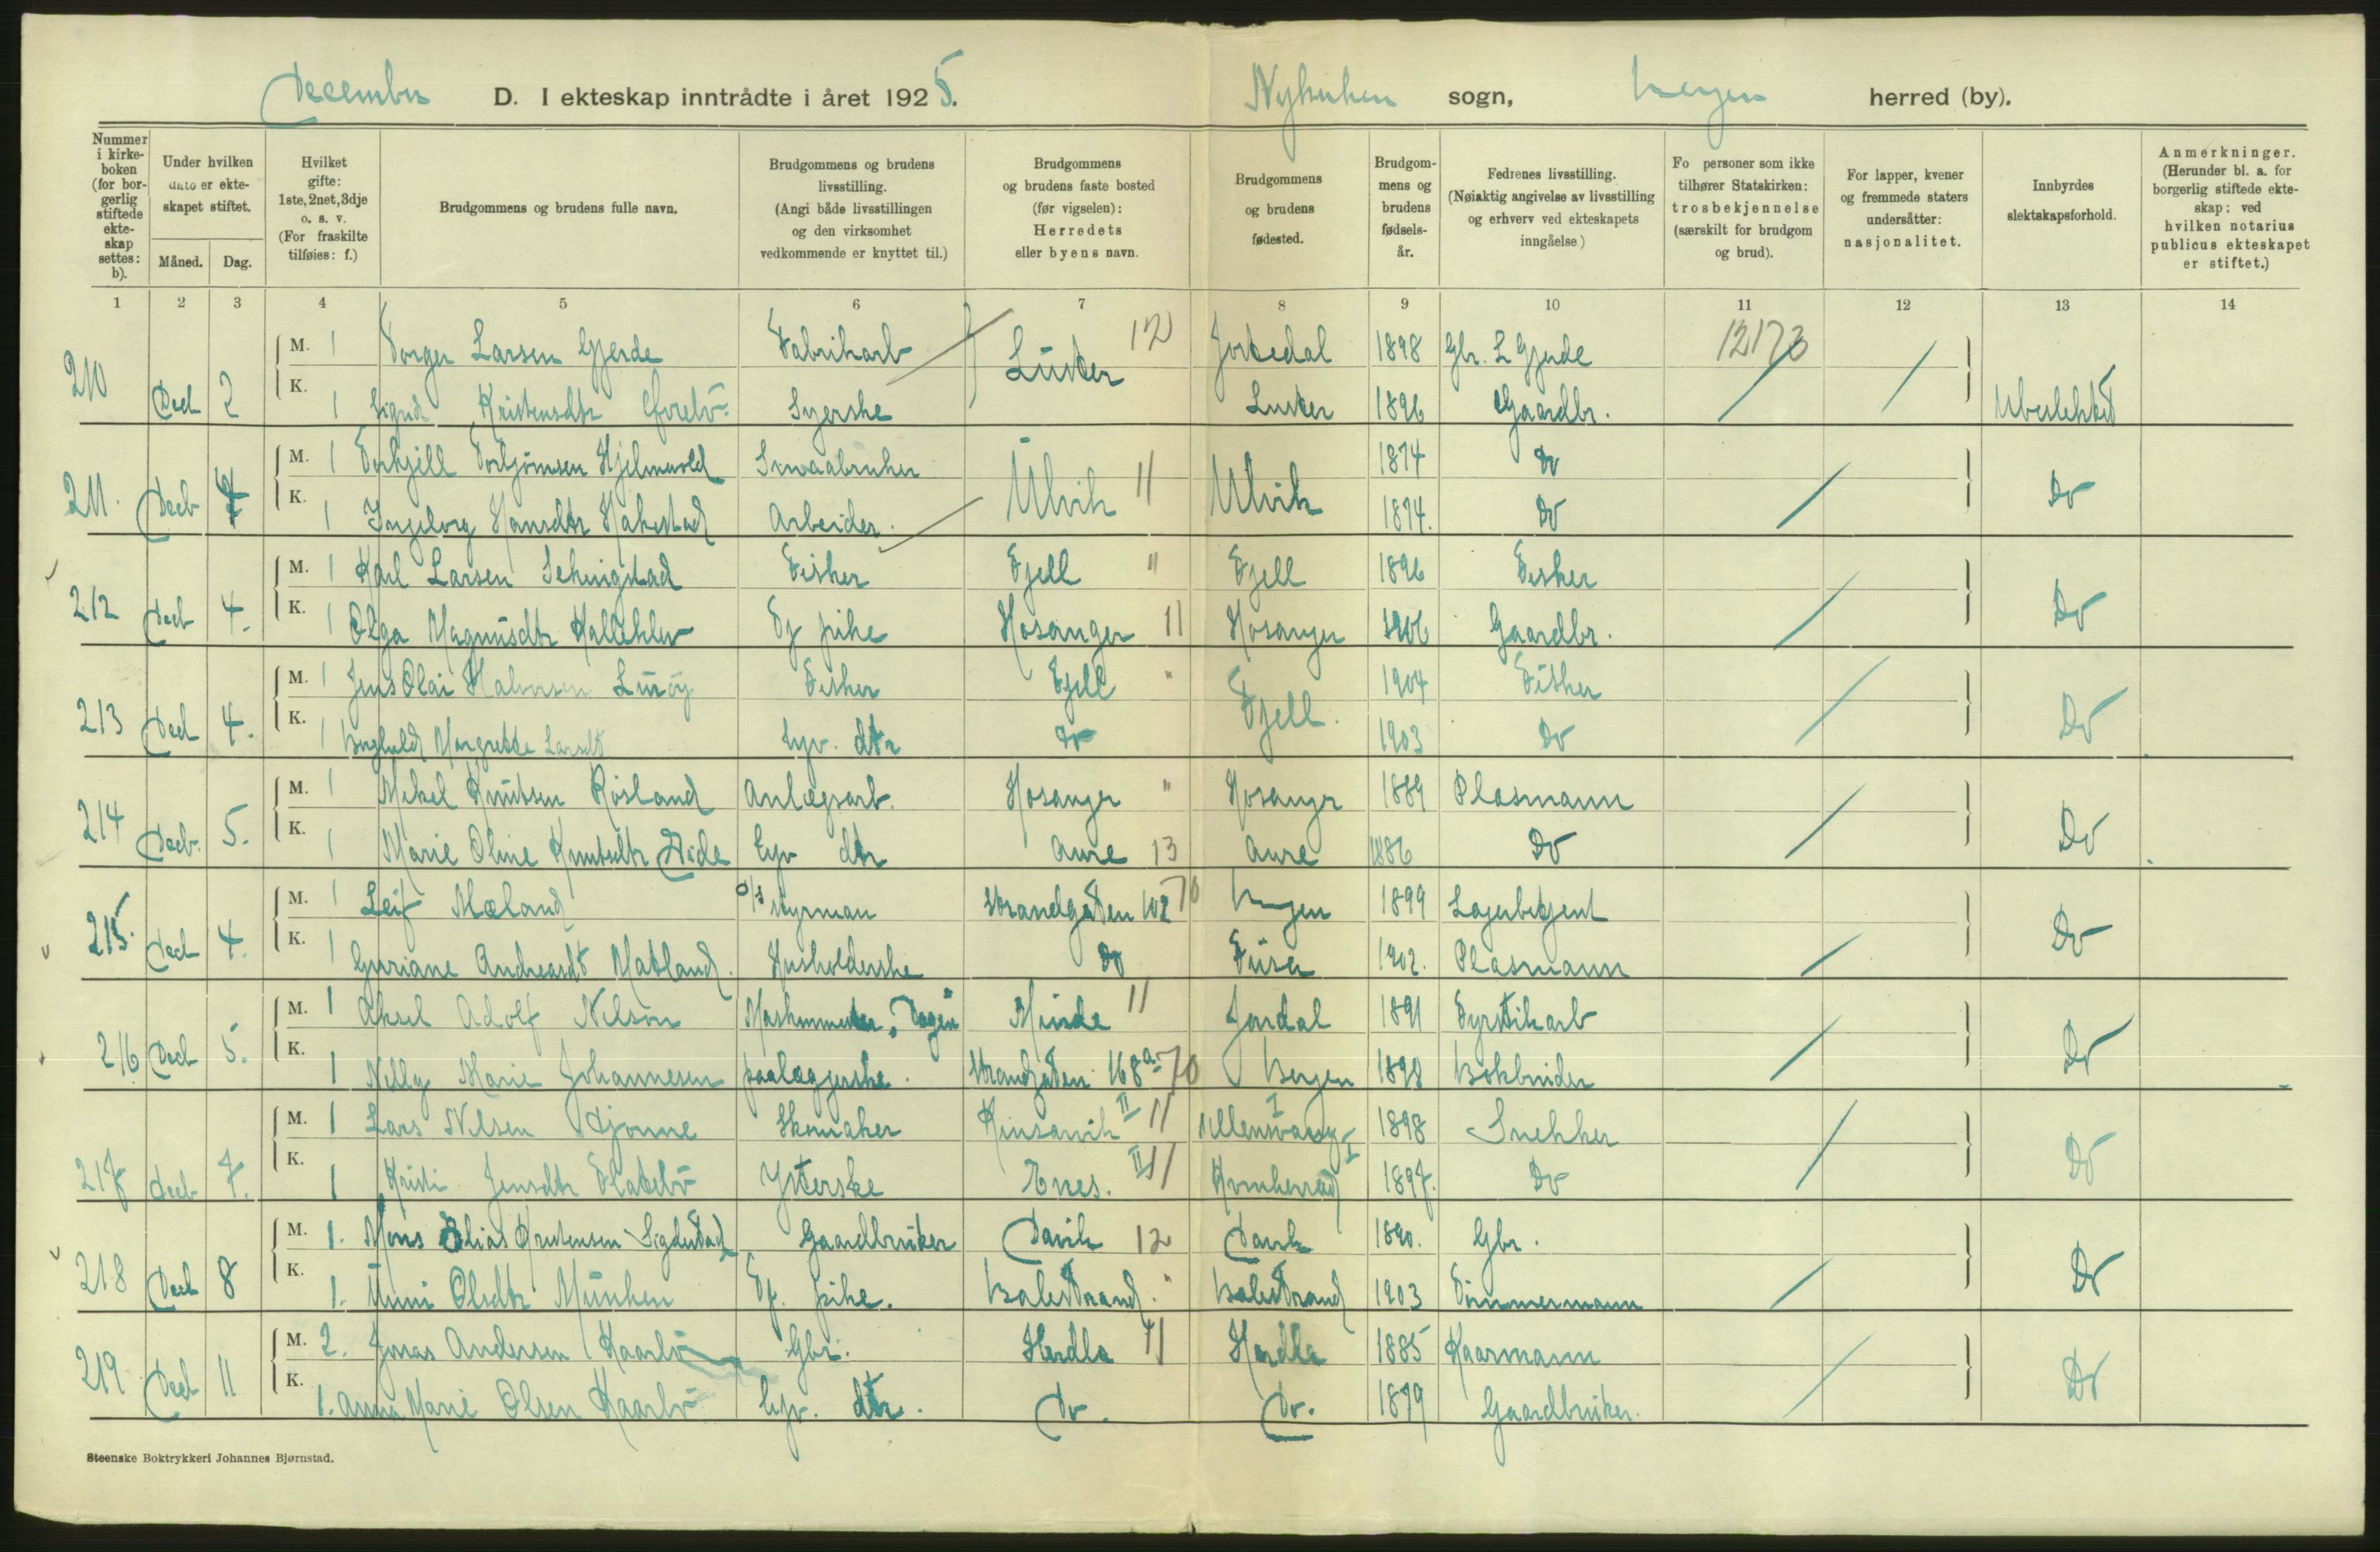 December D. I ekteskap inntrådte i året 1925. Nykirken sogn, Bergen herred (by).
Nummer i kirkeboken (for borgerlig stiftede ekteskap settes: b).
Under hvilken dato er ekteskapet stiftet.
Måned. Dag.
Hvilket gifte: 1ste, 2net, 3dje o. s. v. (For fraskilte tilføies: f.)
Brudgommens og brudens fulle navn.
Brudgommens og brudens livsstilling. (Angi både livsstillingen og den virksomhet vedkommende er knyttet til.)
Brudgommens og brudens faste bosted (før vigselen): Herredets eller byens navn.
Brudgommens og brudens fødested.
Brudgommens og brudens fødselsår.
Fedrenes livsstilling. (Nøiaktig angivelse av livsstilling og erhverv ved ekteskapets inngåelse)
Fo personer som ikke tilhører Statskirken: trosbekjennelse (særskilt for brudgom og brud).
For lapper, kvener og fremmede staters undersåtter: nasjonalitet.
Innbyrdes slektskapsforhold.
Anmerkninger. (Herunder bl. a. for borgerlig stiftede ekteskap: ved hvilken notarius publicus ekteskapet er stiftet.)
1 2 3 4 5 6 7 8 9 10 11 12 13 14
M. 1 Torger Larsen Gjerde Fabrikarb Luster 12 Jostedal 1898 Gbr. L Gjerde 12173
210 Decb 2 K. 1 Sigrid Kristensdtr Syerske Luster 1896 Gaardbr. Ubeslektet
M. 1 Torkjell Torbjörnsen Hjelmevold Smaabruker Ulvik 11 Ulvik 1874 Do
211. Decb 4 K. 1 Ingeborg Hansdtr Hakestad Arbeider. 1874. Do Do
M. 1 Karl Larsen Sekkingstad Fisker Fjell " Fjell 1896 Fisker
212 Decb 4. K. 1 Olga Magnusdtr Halleklev Tj pike Hosanger 11 Hosanger 1906 Gaardbr. Do
M. 1 Jens Olai Halvorsen Lüröy Fisker Fjell " Fjell. 1904 Fisker
213 Decb 4. K. 1 Borghild Margrethe Larsdt hjv. dtr do 1903 Do Do
M. 1 Mikel Knutsen Rösland Anlægsarb. Hosanger " Hosanger 1889 Plasmann
214 Decb. 5. K. 1 Marie Oline Knutsdtr Eide hjv dtr Aure 13 Aure 1886 Do Do
M. 1 Leif Mæland d/s styrman Strandgaten 102 70 Bergen 1899 Lagerbetjent
215. Decb 4. K. 1 Guriane Andreasdt Matland. Husholderske Do Fusa 1902. Plasmann Do
M. 1 Aksel Adolf Nilson Maskinmester, Dagen Minde 11 Jondal 1891 Fyrstikarb
216 Decb 5. K. 1 Nelly Marie Johannesen paalæggerske. Strandgaten 168a 70 Bergen 1898 Bokbinder Do
M. 1 Lars Nilsen Djönne Skomaker Kinsarvik II 11 Ullensvang I 1898 Snekker
217 Decb 7. K. 1 Kristi Jensdtr Flatebö Ysterske Enes. II 11 Kvinherad I 1897. Do Do
M. 1. Mons Elias Kristensen Sigdestad Gaardbruker Davik 12 Davik 1890. Gbr.
218 Decb 8 K. 1. Unni Olsdtr Munken Tj. pike. Balestrand. " Balestrand 1903 Tömmermann Do
M. 2. Jonas Andersen Kaarbö Gbr. Herdla 11 Herdla 1885 Kaarmann
219 Decb 11 K. 1. Anna Marie Olsen Kaarbö hjv. dtr. Do. Do. 1879 Gaardbruker. Do
Steenske Boktrykkeri Johannes Bjørnstad.